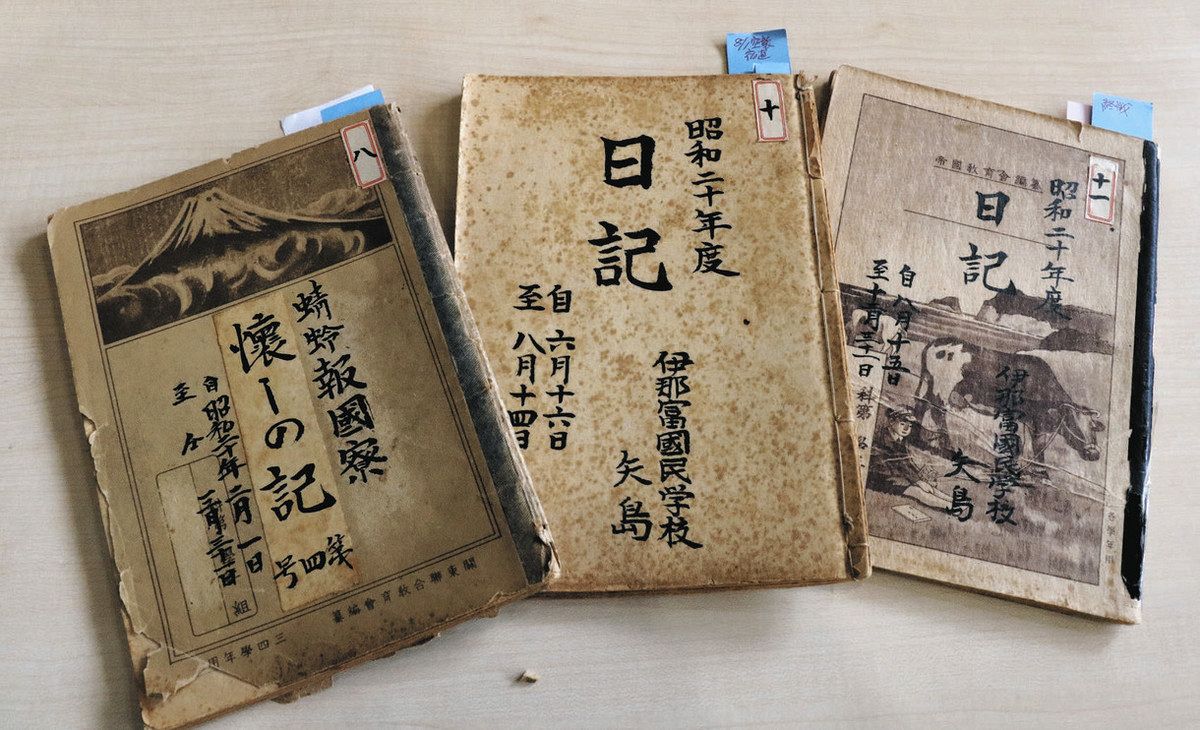 八
蜻蛉報國寮
懷しの記
第四号
自昭和二十年二月一日
至仝
関東聯合教育會編纂
三四學年用
組
十
昭和二十年度
日記
自六月十六日
至八月十四日
伊那富國民学校
矢島
十一
帝國教育會編纂
昭和二十年度
日記
自八月十五日
至十月三十一日
科第
伊那富國民學校
矢島
各學年用
終戦